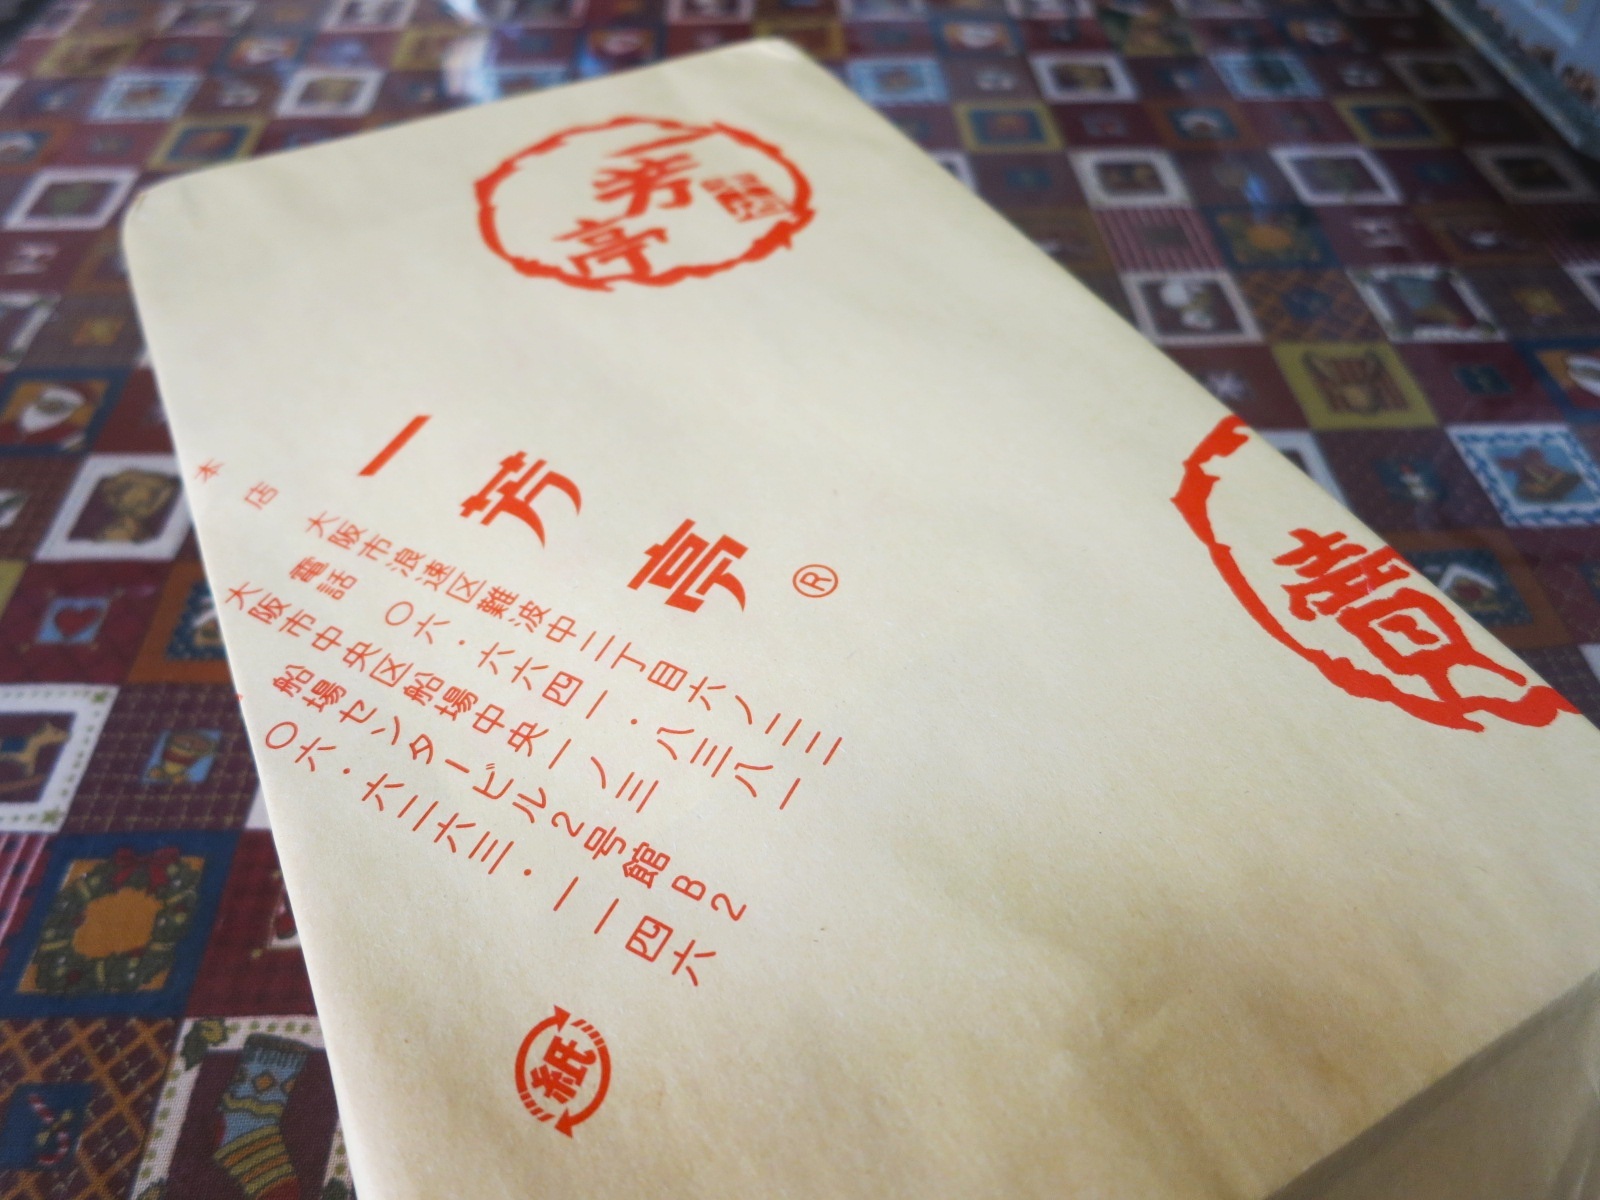 一芳亭
一芳亭®
本店 大阪市浪速区難波中二丁目六ノ二二
電話 〇六・六六四一・八三八一
大阪市中央区船場中央一ノ三
船場センタービル2号館B2
〇六・六二六三・一一四六
紙